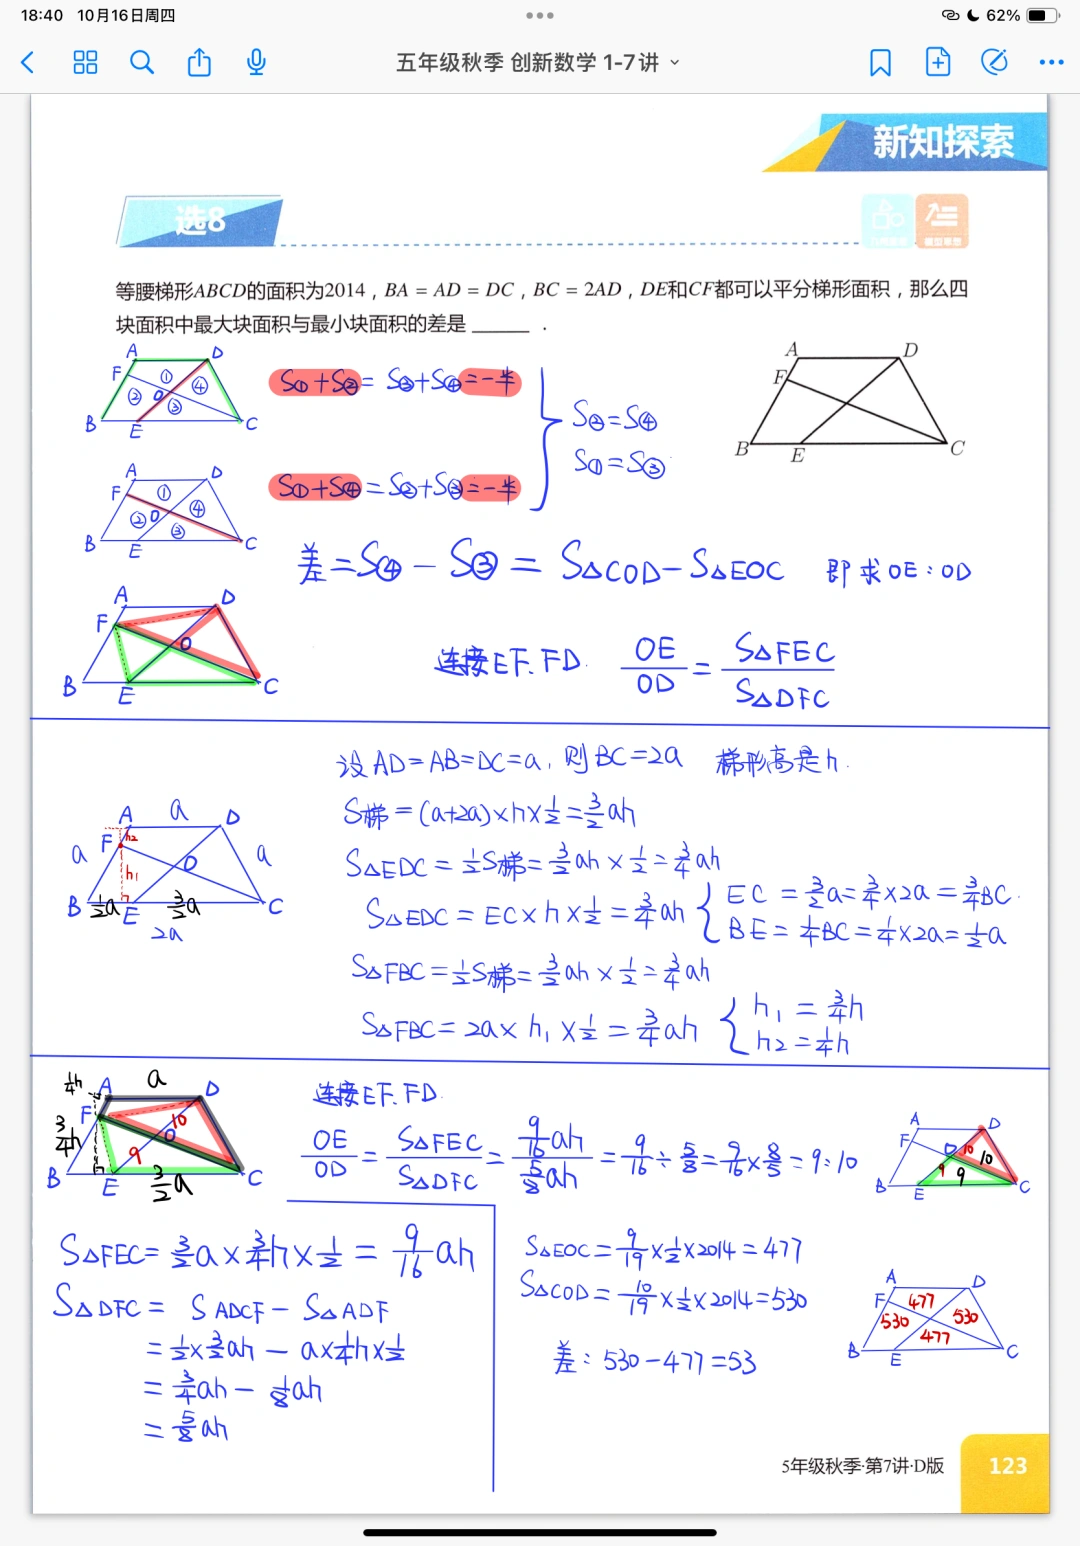 18:40 10月16日周四
62%
五年级秋季 创新数学 1-7讲
新知探索
选8
等腰梯形ABCD的面积为2014，BA = AD = DC，BC = 2AD，DE和CF都可以平分梯形面积，那么四
块面积中最大块面积与最小块面积的差是 ______ ．
A D F B E C
A D F ① ④ ② O ③ B E C
S①+S②= S③+S④=一半
S②=S④
S①=S③
A D F ① ④ ② O ③ B E C
S①+S④=S②+S③=一半
差=S④-S③=S△COD-S△EOC 即求OE:OD
A D F O B E C
连接EF.FD. OE/OD = S△FEC/S△DFC
设AD=AB=DC=a, 则BC=2a 梯形高是h.
S梯=(a+2a)×h×1/2=3/2ah
A a D F h2 a O a h1 B 1/2a E 3/2a C 2a
S△EDC=1/2S梯=3/2ah×1/2=3/4ah
S△EDC=EC×h×1/2=3/4ah { EC=3/2a=3/4×2a=3/4BC.
BE=1/4BC=1/4×2a=1/2a
S△FBC=1/2S梯=3/2ah×1/2=3/4ah
S△FBC=2a×h1×1/2=3/4ah { h1=3/4h
h2=1/4h
1/4h A a D F 10 3/4h O 9 B E 3/2a C
连接EF.FD.
OE/OD = S△FEC/S△DFC = 9/16ah / 5/8ah = 9/16÷5/8=9/16×8/5=9:10
A D F O 10 10 9 9 B E C
S△FEC=3/2a×3/4h×1/2=9/16ah
S△DFC= SADCF-S△ADF
=1/2×3/2ah-a×1/4h×1/2
=3/4ah-1/8ah
=5/8ah
S△EOC=9/19×1/2×2014=477
S△COD=10/19×1/2×2014=530
差:530-477=53
A D F 477 530 530 477 B E C
5年级秋季·第7讲·D版
123